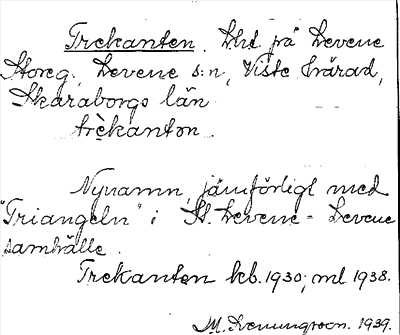 Trekanten. Lht. på Levene
Storeg. Levene s:n, Viste härad,
Skaraborgs län
trèkantən.
Nynamn, jämförligt med
"Triangeln" i St. Levene - Levene
samhälle.
Trekanten heb. 1930; ml 1938.
M. 1939.